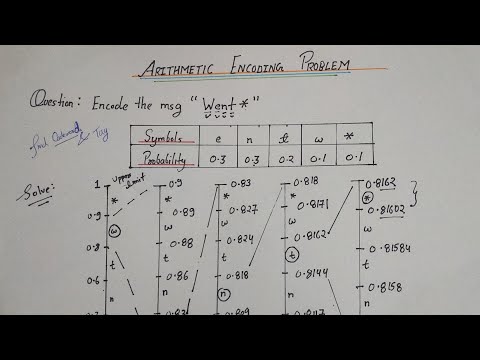 ARITHMETIC ENCODING PROBLEM
Question: Encode the msg "Went *"
Tag
Symbols e n t w *
Probability 0.3 0.3 0.2 0.1 0.1
Solve:
upper limit
1 0.9 0.83 0.818 0.8162
* * * * *
0.9 0.89 0.827 0.8171 0.81602
w w w w w
0.8 0.88 0.824 0.8162 0.81584
t t t t t
0.6 0.86 0.818 0.8144 0.8158
n n n n n
0.3 0.83 0.809 0.8117